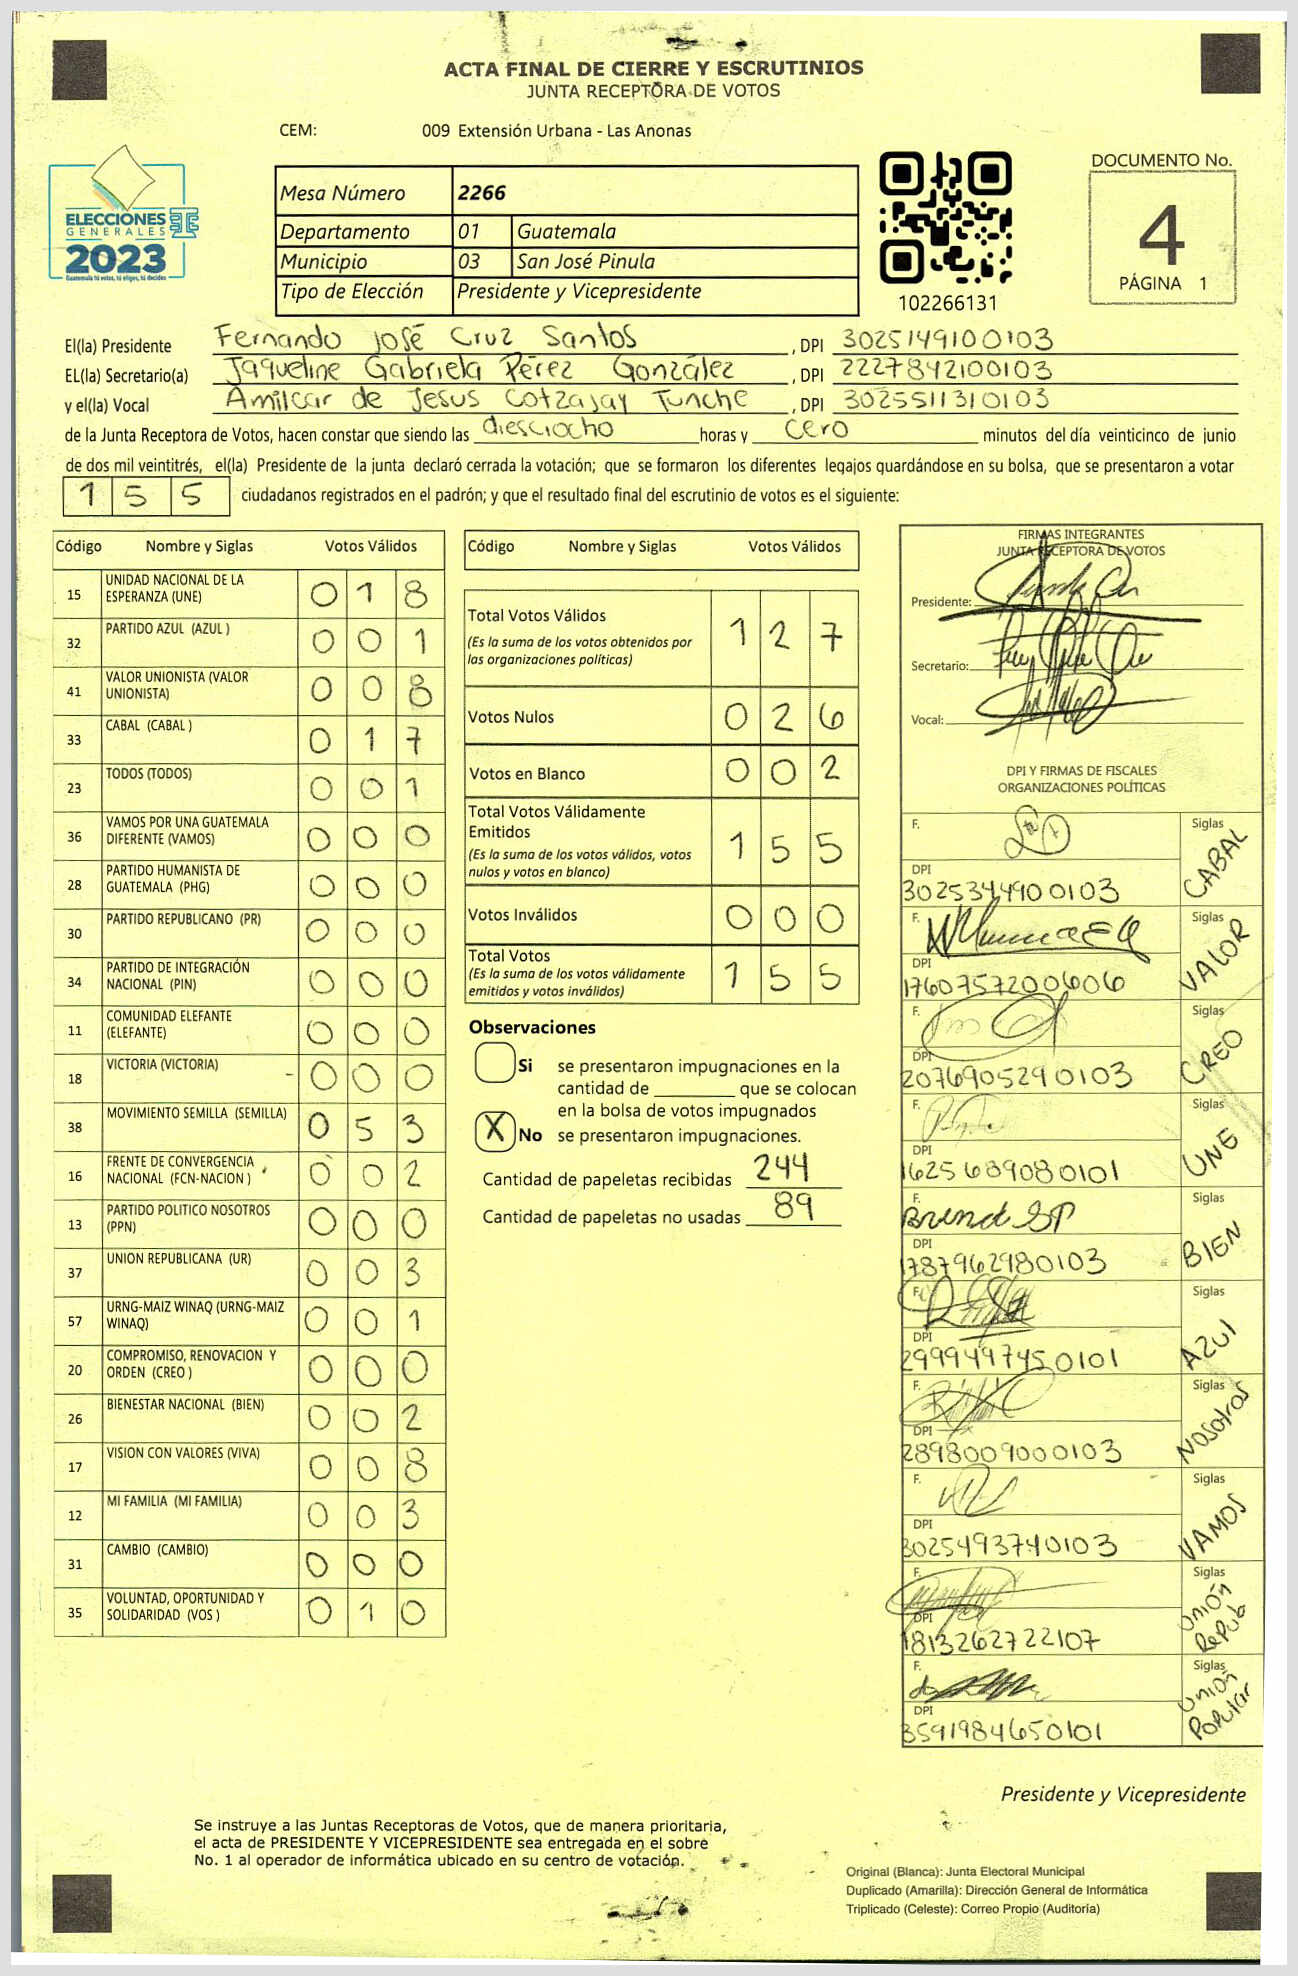 ACTA FINAL DE CIERRE Y ESCRUTINIOS
JUNTA RECEPTORA DE VOTOS
CEM: 009 Extensión Urbana - Las Anonas
ELECCIONES
GENERALES
2023
Guatemala tú votas, tú eliges, tú decides
Mesa Número 2266
Departamento 01 Guatemala
Municipio 03 San José Pinula
Tipo de Elección Presidente y Vicepresidente
102266131
DOCUMENTO No.
4
PÁGINA 1
El(la) Presidente Fernando José Cruz Santos , DPI 3025149100103
EL(la) Secretario(a) Jaqueline Gabriela Pérez González , DPI 2227842100103
y el(la) Vocal Amilcar de Jesus Cotzajay Tunche , DPI 3025511310103
de la Junta Receptora de Votos, hacen constar que siendo las diesciocho horas y cero minutos del día veinticinco de junio
de dos mil veintitrés, el(la) Presidente de la junta declaró cerrada la votación; que se formaron los diferentes legajos guardándose en su bolsa, que se presentaron a votar
155 ciudadanos registrados en el padrón; y que el resultado final del escrutinio de votos es el siguiente:
Código Nombre y Siglas Votos Válidos
15 UNIDAD NACIONAL DE LA ESPERANZA (UNE) 018
32 PARTIDO AZUL (AZUL ) 001
41 VALOR UNIONISTA (VALOR UNIONISTA) 008
33 CABAL (CABAL ) 017
23 TODOS (TODOS) 001
36 VAMOS POR UNA GUATEMALA DIFERENTE (VAMOS) 000
28 PARTIDO HUMANISTA DE GUATEMALA (PHG) 000
30 PARTIDO REPUBLICANO (PR) 000
34 PARTIDO DE INTEGRACIÓN NACIONAL (PIN) 000
11 COMUNIDAD ELEFANTE (ELEFANTE) 000
18 VICTORIA (VICTORIA) 000
38 MOVIMIENTO SEMILLA (SEMILLA) 053
16 FRENTE DE CONVERGENCIA NACIONAL (FCN-NACION ) 002
13 PARTIDO POLITICO NOSOTROS (PPN) 000
37 UNION REPUBLICANA (UR) 003
57 URNG-MAIZ WINAQ (URNG-MAIZ WINAQ) 001
20 COMPROMISO, RENOVACION Y ORDEN (CREO ) 000
26 BIENESTAR NACIONAL (BIEN) 002
17 VISION CON VALORES (VIVA) 008
12 MI FAMILIA (MI FAMILIA) 003
31 CAMBIO (CAMBIO) 000
35 VOLUNTAD, OPORTUNIDAD Y SOLIDARIDAD (VOS ) 010
Código Nombre y Siglas Votos Válidos
Total Votos Válidos 127
(Es la suma de los votos obtenidos por
las organizaciones políticas)
Votos Nulos 026
Votos en Blanco 002
Total Votos Válidamente
Emitidos 155
(Es la suma de los votos válidos, votos
nulos y votos en blanco)
Votos Inválidos 000
Total Votos 155
(Es la suma de los votos válidamente
emitidos y votos inválidos)
Observaciones
Si se presentaron impugnaciones en la
cantidad de ________ que se colocan
en la bolsa de votos impugnados
X No se presentaron impugnaciones.
Cantidad de papeletas recibidas 244
Cantidad de papeletas no usadas 89
FIRMAS INTEGRANTES
JUNTA RECEPTORA DE VOTOS
Presidente:
Secretario:
Vocal:
DPI Y FIRMAS DE FISCALES
ORGANIZACIONES POLÍTICAS
F. Siglas CABAL
DPI
3025344900103
F. Siglas VALOR
DPI
1760757200606
F. Siglas CREO
DPI
2076905290103
F. Siglas UNE
DPI
1625689080101
F. Siglas BIEN
DPI
1787962980103
F. Siglas AZUl
DPI
2999497450101
F. Siglas Nosotros
DPI
2898009000103
F. Siglas VAMOS
DPI
3025493740103
F. Siglas Unión Repub
DPI
1813262722107
F. Siglas Unión Popular
DPI
3591984650101
Presidente y Vicepresidente
Se instruye a las Juntas Receptoras de Votos, que de manera prioritaria,
el acta de PRESIDENTE Y VICEPRESIDENTE sea entregada en el sobre
No. 1 al operador de informática ubicado en su centro de votación.
Original (Blanca): Junta Electoral Municipal
Duplicado (Amarilla): Dirección General de Informática
Triplicado (Celeste): Correo Propio (Auditoría)